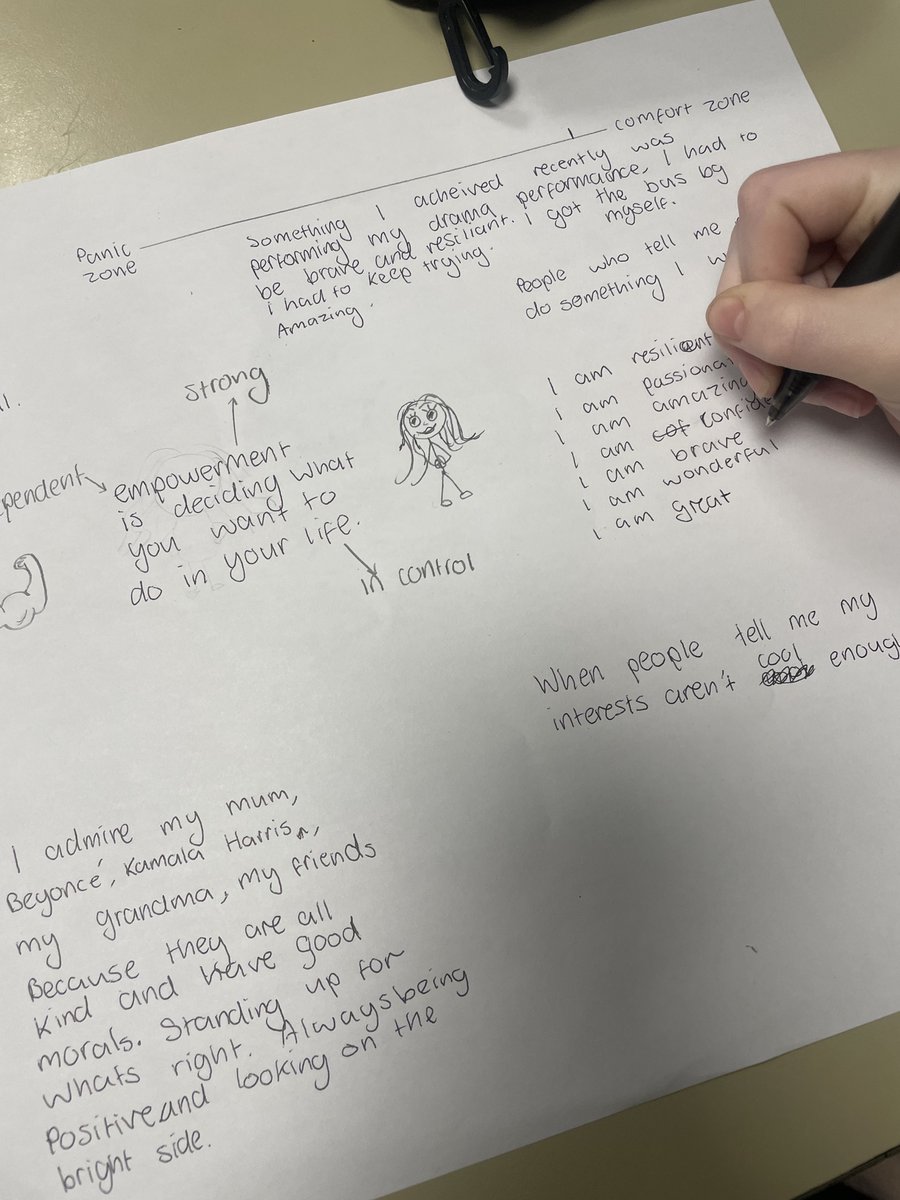 comfort zone
Panic
zone
Something I acheived recently was
performing my drama performance. I had to
be brave and resiliant. I got the bus by
myself.
i had to keep trying.
Amazing.
People who tell me
do something I
strong
empowerment
is deciding what
you want to
do in your life.
in control
I am resilient
I am
I am amazing
I am
I am brave
I am wonderful
I am great
When people tell me my
interests aren't cool
I admire my mum,
Beyoncé, Kamala Harris,
my grandma, my friends
Because they are all
kind and have good
morals. Standing up for
whats right. Always being
Positive and looking on the
bright side.